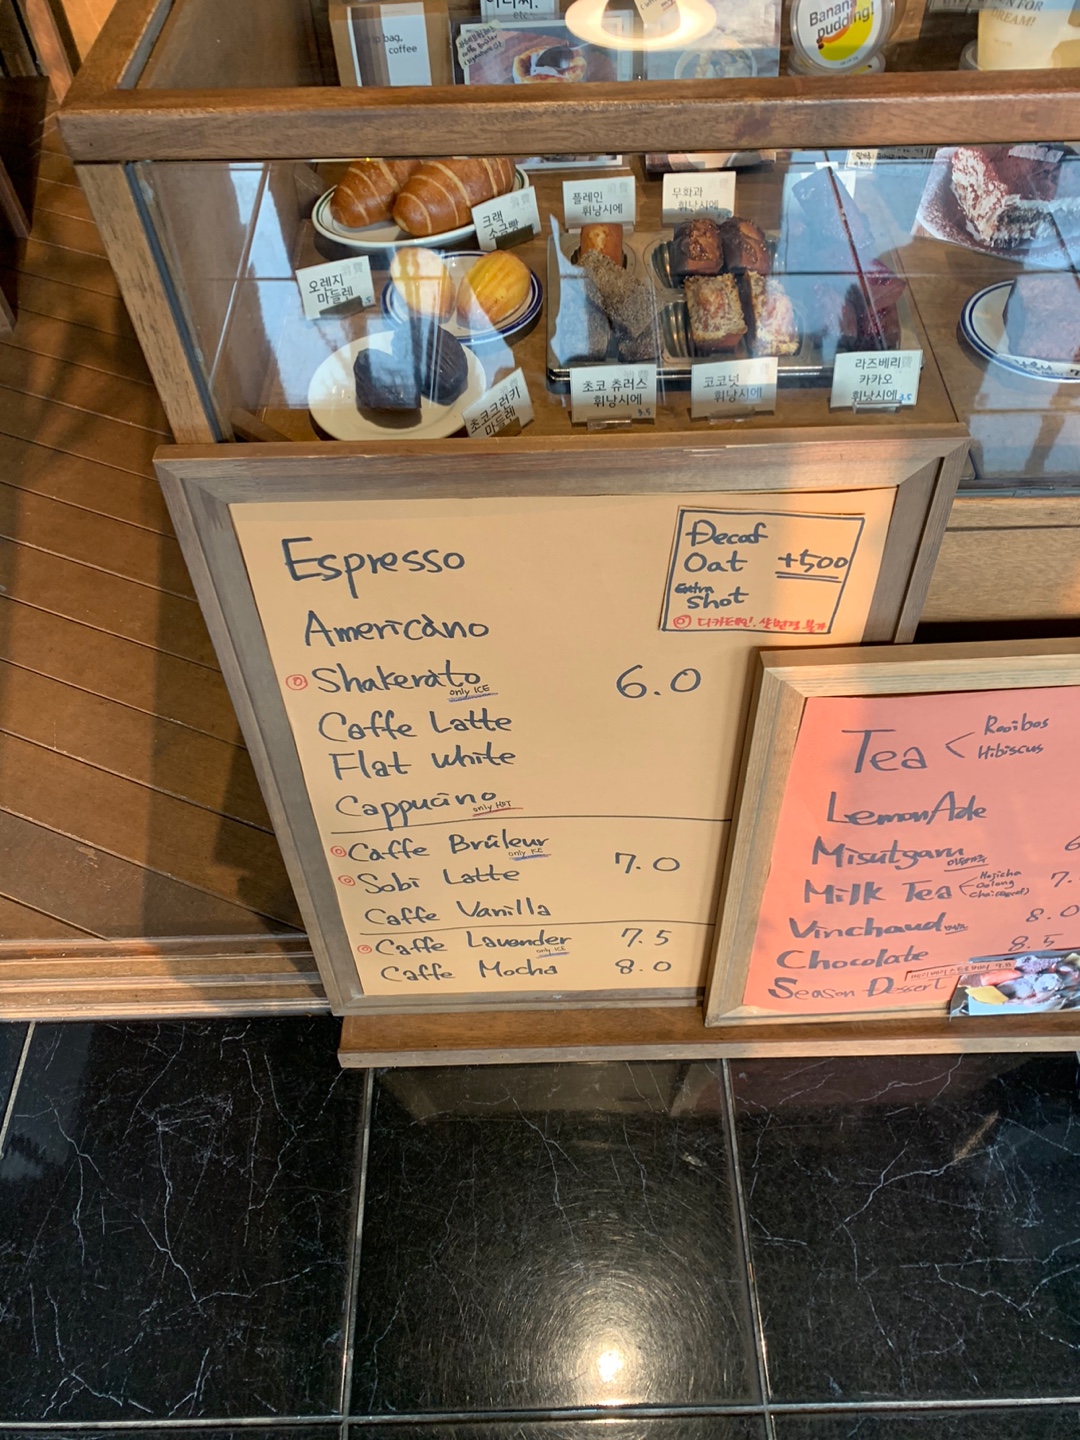 bag.
coffee
Banana
pudding!
크랙
소금빵
플레인
휘낭시에
무화과
휘낭시에
오렌지
마들렌
초코크러키
마들렌
초코 츄러스
휘낭시에
3.5
코코넛
휘낭시에
라즈베리
카카오
휘낭시에
3.5
Espresso
Americano
Shakerato only ICE 6.0
Caffe Latte
Flat white
Cappucino only HOT
Caffe Brûleur only ICE
Sobi Latte 7.0
Caffe Vanilla
Caffe Lavender only ICE 7.5
Caffe Mocha 8.0
Decaf
Oat +500
Extra
Shot
디카페인, 샷변경 불가
Tea < Rooibos
Hibiscus
LemonAde
Misutgaru
Milk Tea < Hojicha
Oolong
Chai
7.
Vinchaud 8.0
Chocolate 8.5
Season Dessert